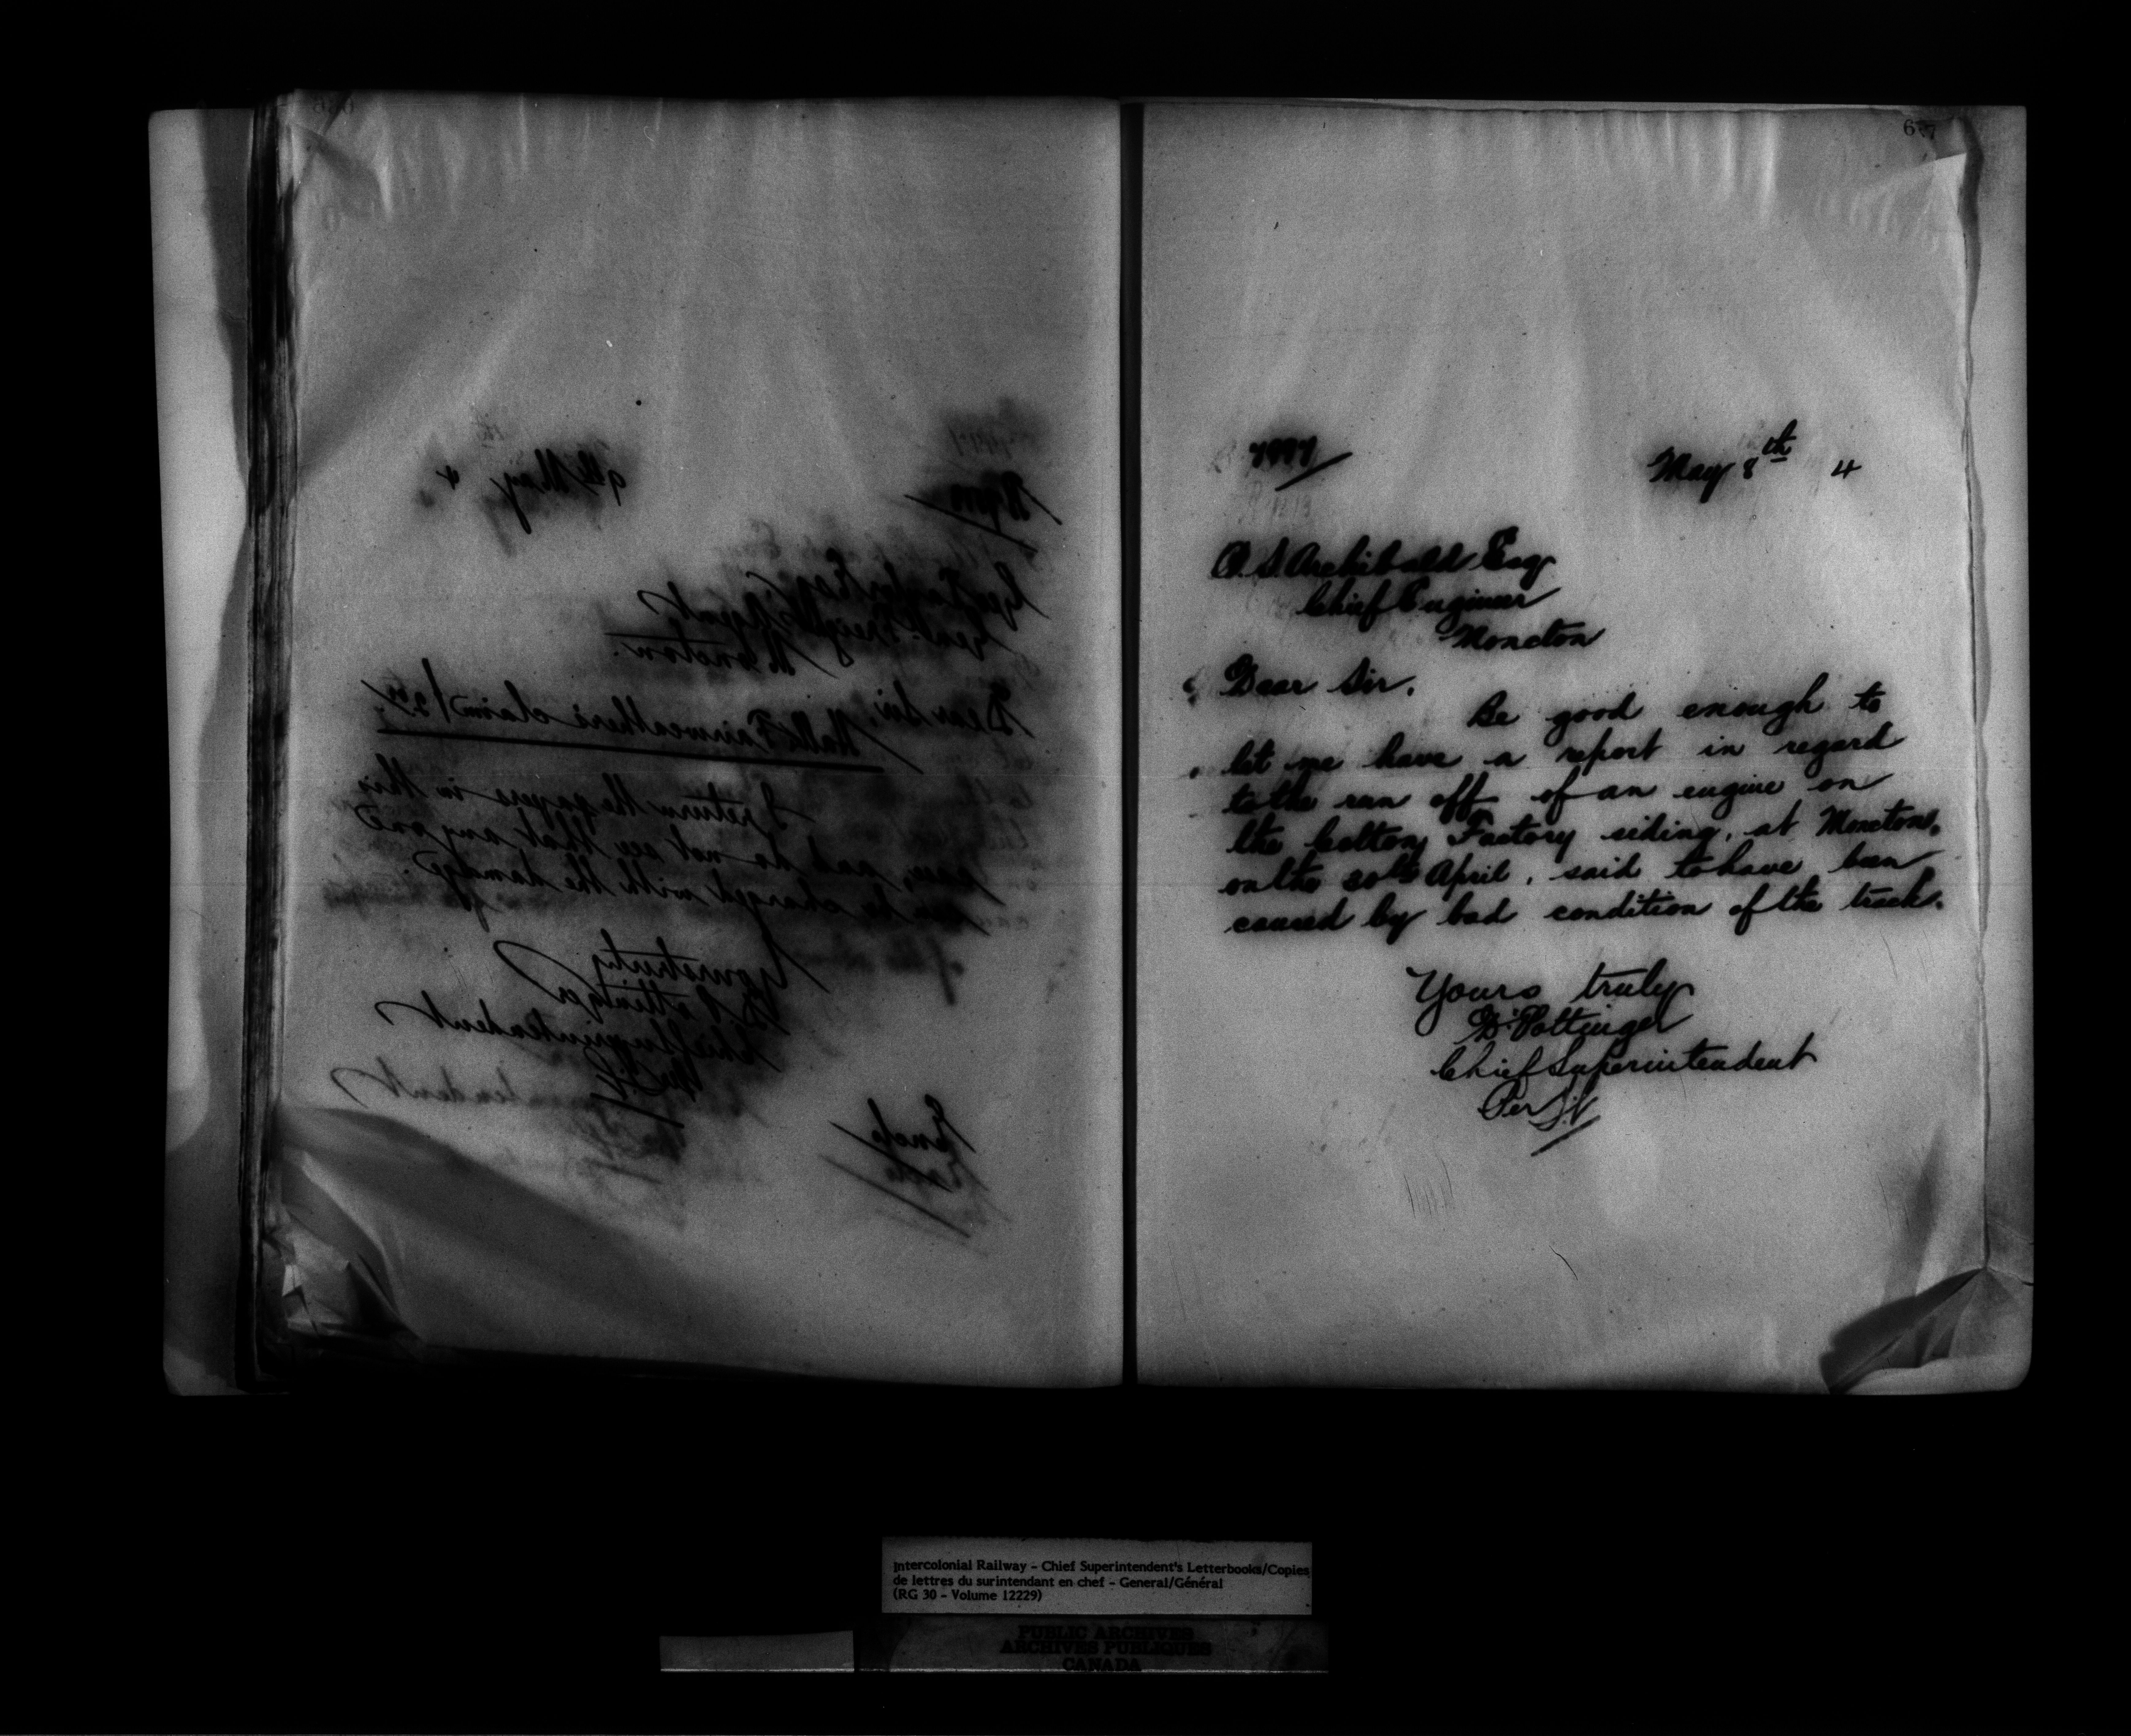 9th May 4
Moncton.
Dear Sir,
Hall & Fairweather's claim
I return the papers in this
case, and do not see that any one
can be charged with the damage.
Yours truly
D Pottinger
Chief Superintendent
Encls
677
7997
May 8th 4
P. S. Archibald Esq
Chief Engineer
Moncton
Dear Sir.
Be good enough to
let me have a report in regard
to the run off of an engine on
the Cotton Factory siding, at Moncton,
on the 30th April, said to have been
caused by bad condition of the track.
Yours truly
D. Pottinger
Chief Superintendent
Per
Intercolonial Railway – Chief Superintendent's Letterbooks/Copies
de lettres du surintendant en chef – General/Général
(RG 30 – Volume 12229)
PUBLIC ARCHIVES
ARCHIVES PUBLIQUES
CANADA